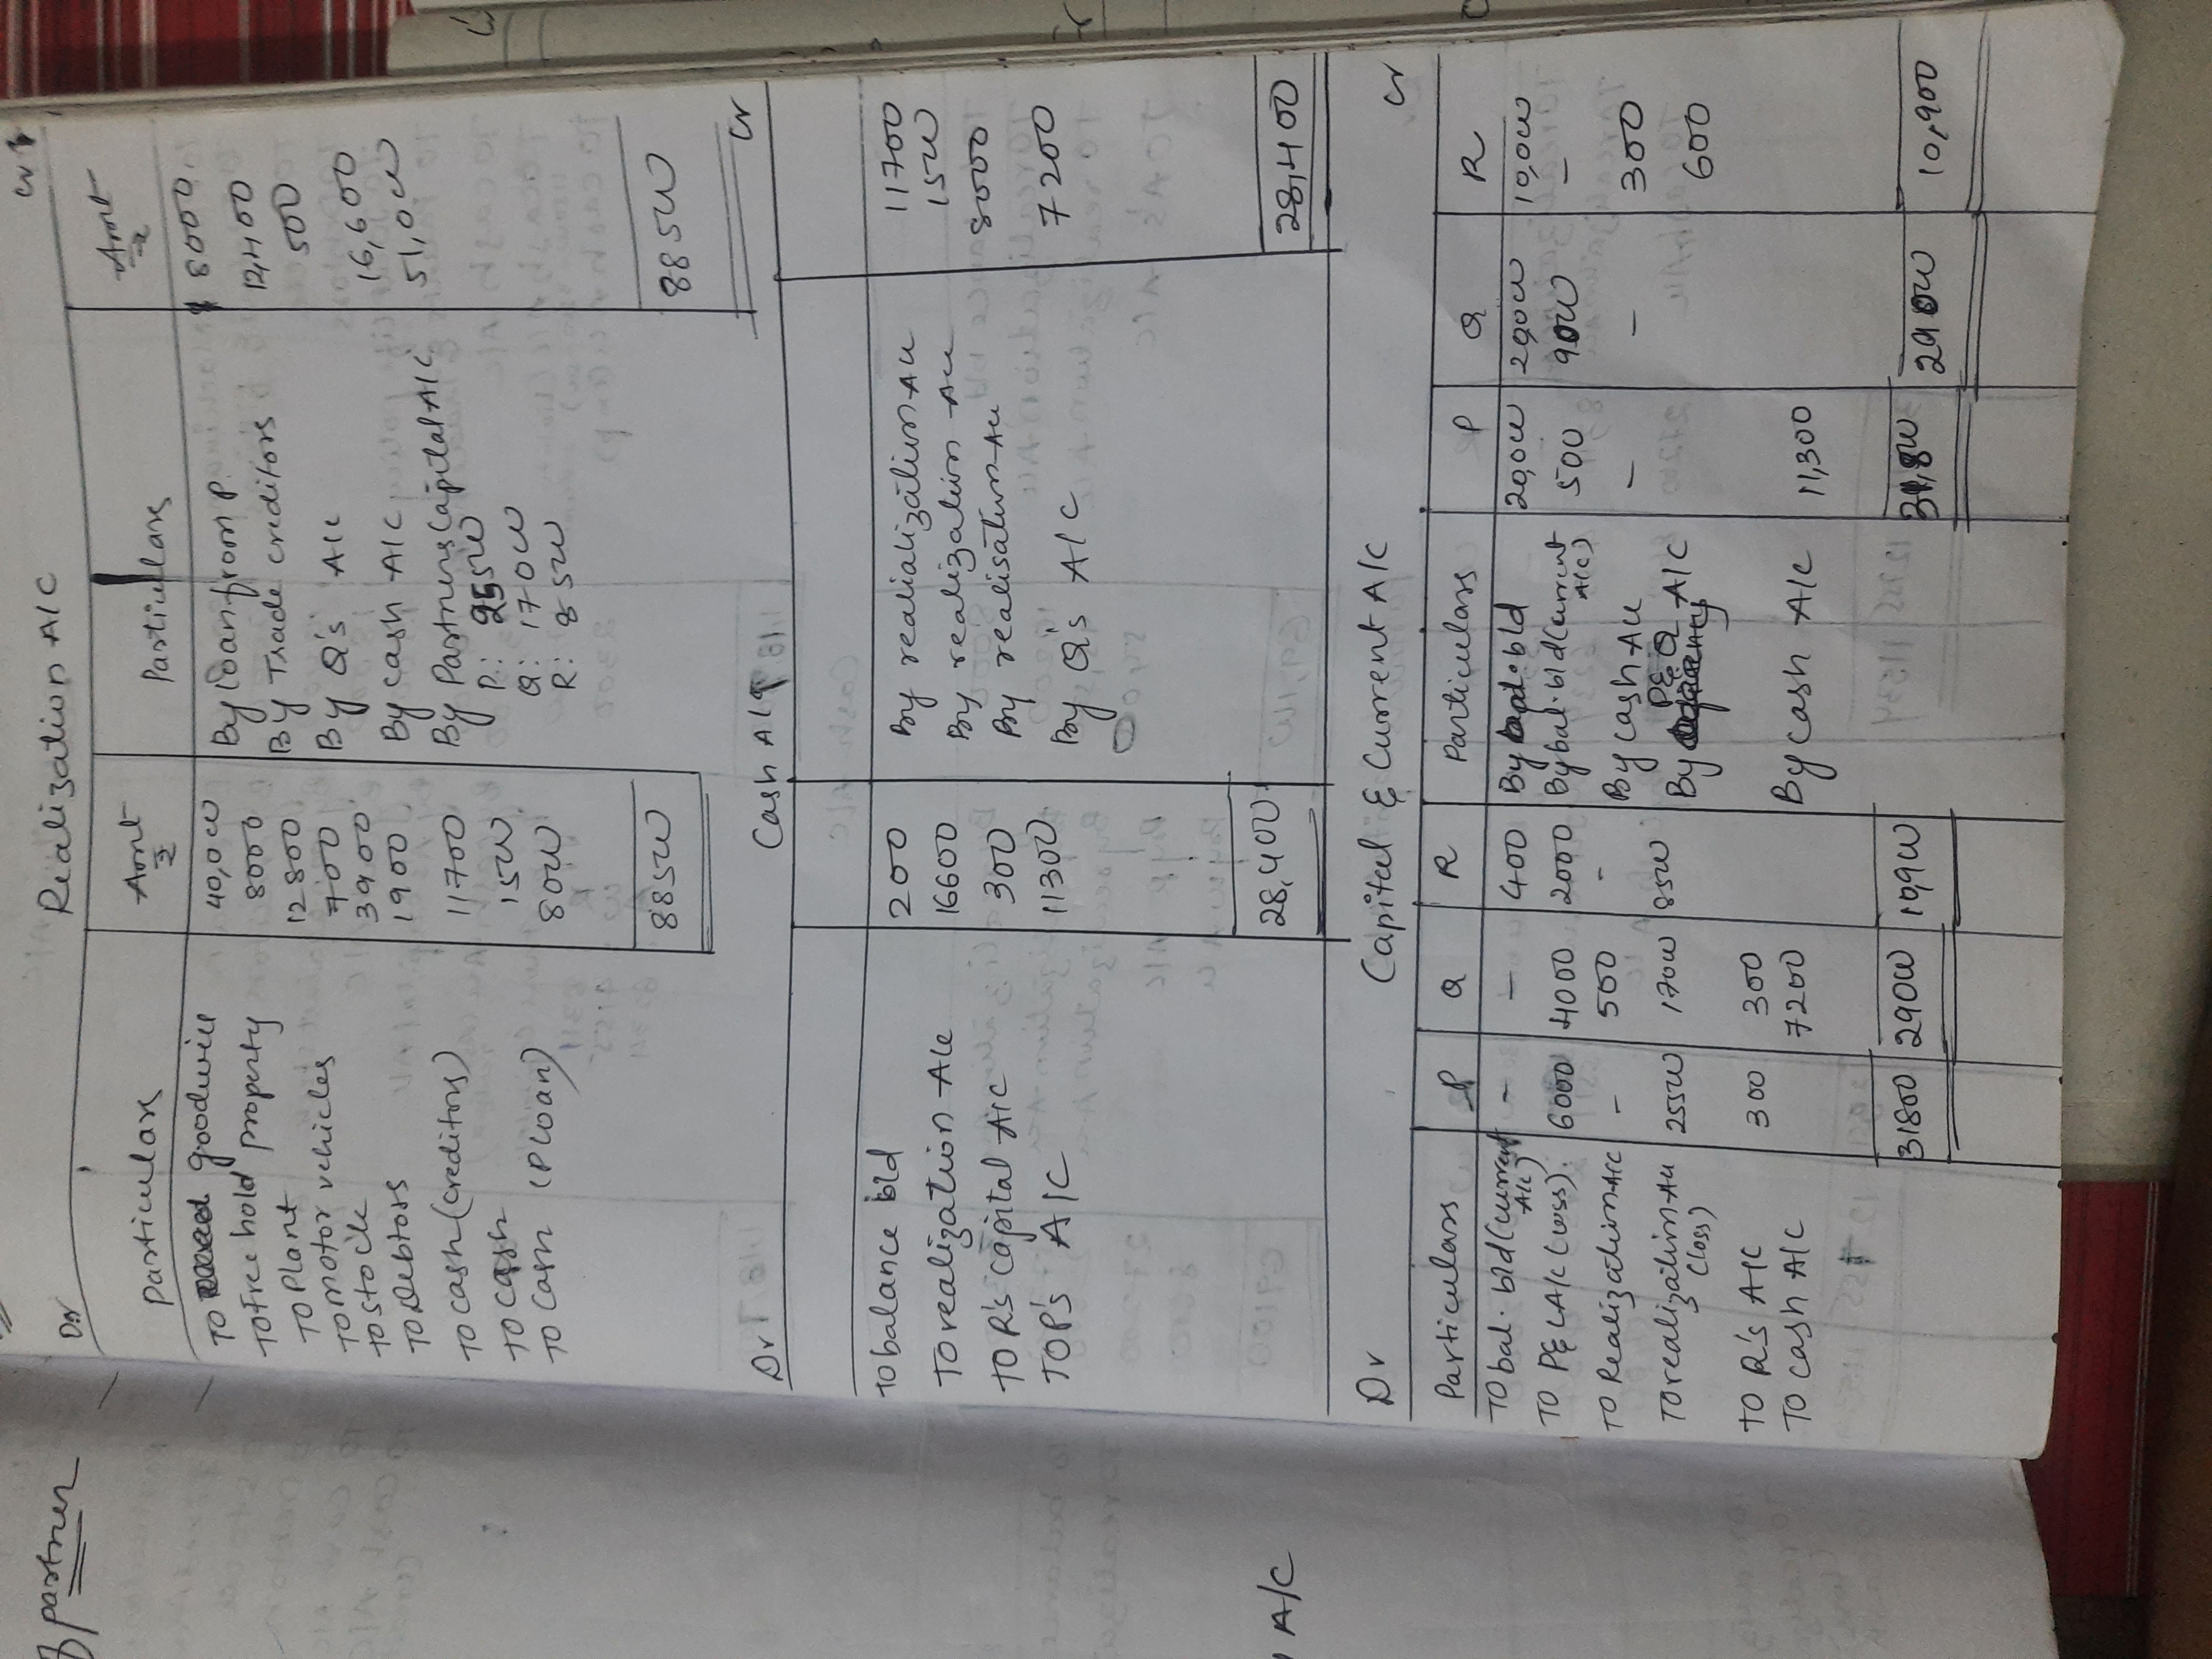 of partner
A/C
Realization A/C
Dr Cr
Particulars Amt Particulars Amt
To goodwill 40,000 By loan from P. 8000
To free hold property 8000 By Trade creditors 12,400
To Plant 12800 By Q's A/c 500
To motor vehicles 700
To stock 3900 By cash A/C 16,600
To Debtors 1900 By Partners Capital A/C 51,000
To cash (creditors) 11700 P: 25500
To cash 1500 Q: 17000
To cash (P loan) 8000 R: 8500
88500 88500
Cash A/c
Dr Cr
To balance b/d 200 By realization A/c 11700
To realization A/c 16600 By realization A/c 1500
To R's capital A/C 300 By realisation A/c 8000
To P's A/C 11300 By Q's A/C 7200
28,400 28,400
Capital & Current A/C
Dr Cr
Particulars P Q R Particulars P Q R
To bal. b/d (Current A/c) - - 400 By bal. b/d 20,000 20,000 10,000
To P&L A/c (loss). 6000 4000 2000 By bal. b/d (Current A/c) 500 9000 -
To Realization A/c - 500 - By cash A/c - - 300
To realization A/c (loss) 25500 17000 8500 By P & Q A/C 600
To R's A/C 300 300
To cash A/C 7200 By cash A/c 11,300
31800 29000 10,900 31,800 29000 10,900